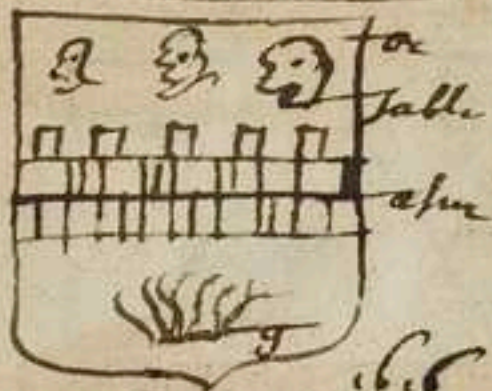 or
sable
asur
g